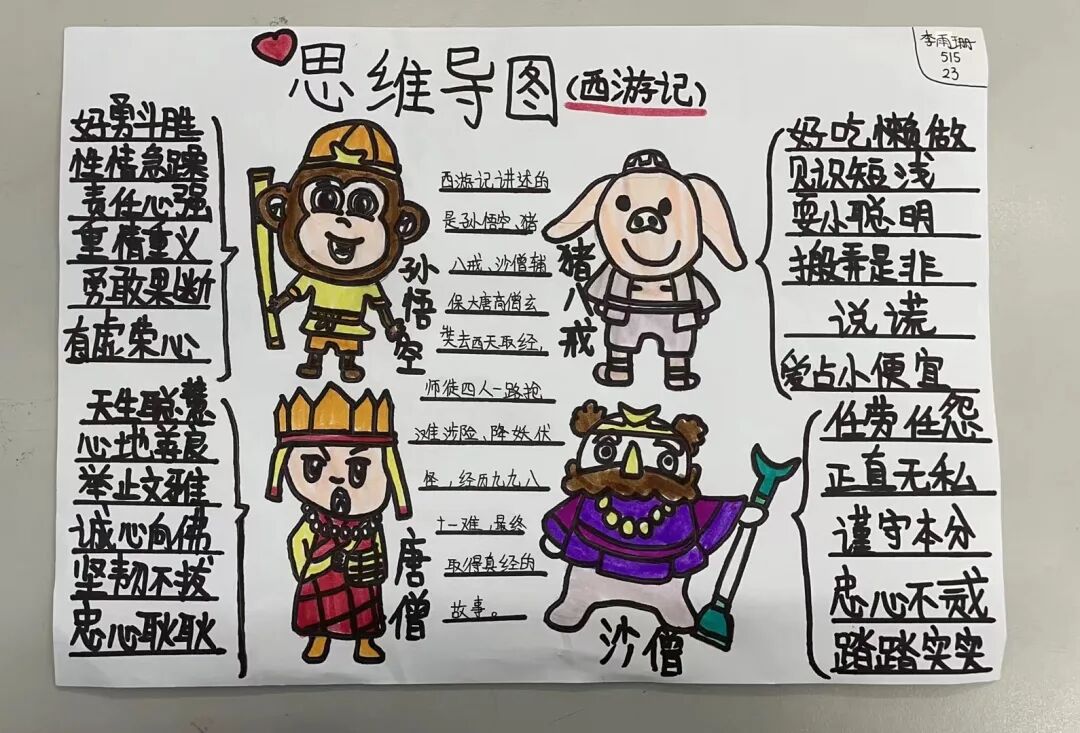 思维导图(西游记)
李雨珊
515
23
好勇斗胜
性情急躁
责任心强
重情重义
勇敢果断
有虚荣心
孙悟空
西游记讲述的
是孙悟空、猪
八戒、沙僧辅
保大唐高僧玄
奘去西天取经,
师徒四人一路抢
滩涉险、降妖伏
怪,经历九九八
十一难,最终
取得真经的
故事。
猪八戒
好吃懒做
见识短浅
耍小聪明
搬弄是非
说谎
爱占小便宜
天生聪慧
心地善良
举止文雅
诚心向佛
坚韧不拔
忠心耿耿
唐僧
沙僧
任劳任怨
正直无私
谨守本分
忠心不贰
踏踏实实